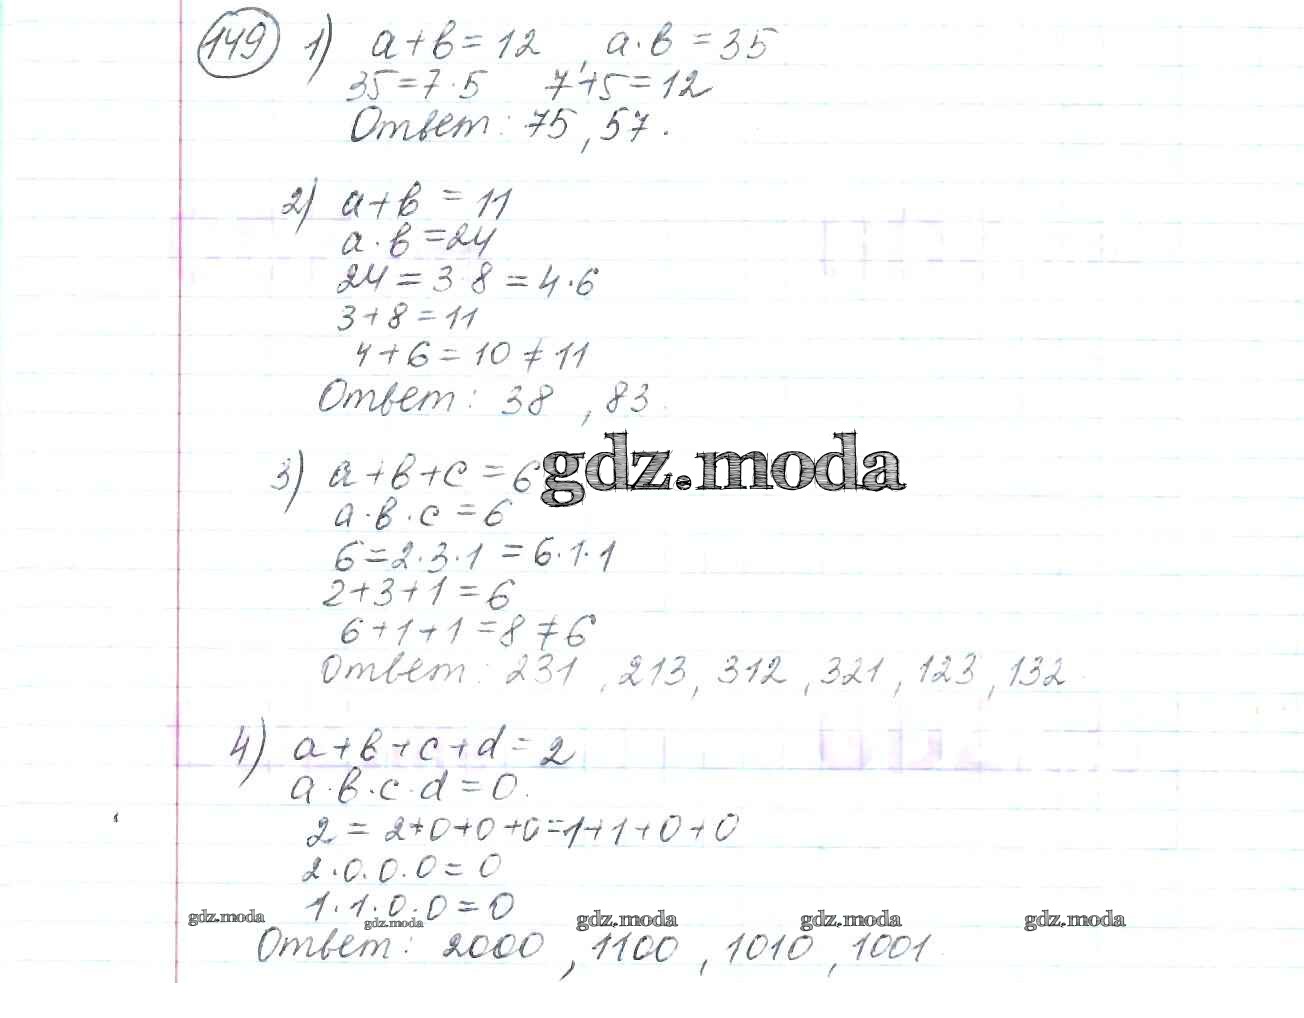 149 1) a+b=12, a·b=35
35=7·5 7+5=12
Ответ: 75, 57.
2) a+b=11
a·b=24
24=3·8=4·6
3+8=11
4+6=10≠11
Ответ: 38, 83.
gdz.moda
3) a+b+c=6
a·b·c=6
6=2·3·1=6·1·1
2+3+1=6
6+1+1=8≠6
Ответ: 231, 213, 312, 321, 123, 132.
4) a+b+c+d=2
a·b·c·d=0.
2=2+0+0+0=1+1+0+0
2·0·0·0=0
1·1·0·0=0
gdz.moda gdz.moda gdz.moda gdz.moda gdz.moda
Ответ: 2000, 1100, 1010, 1001